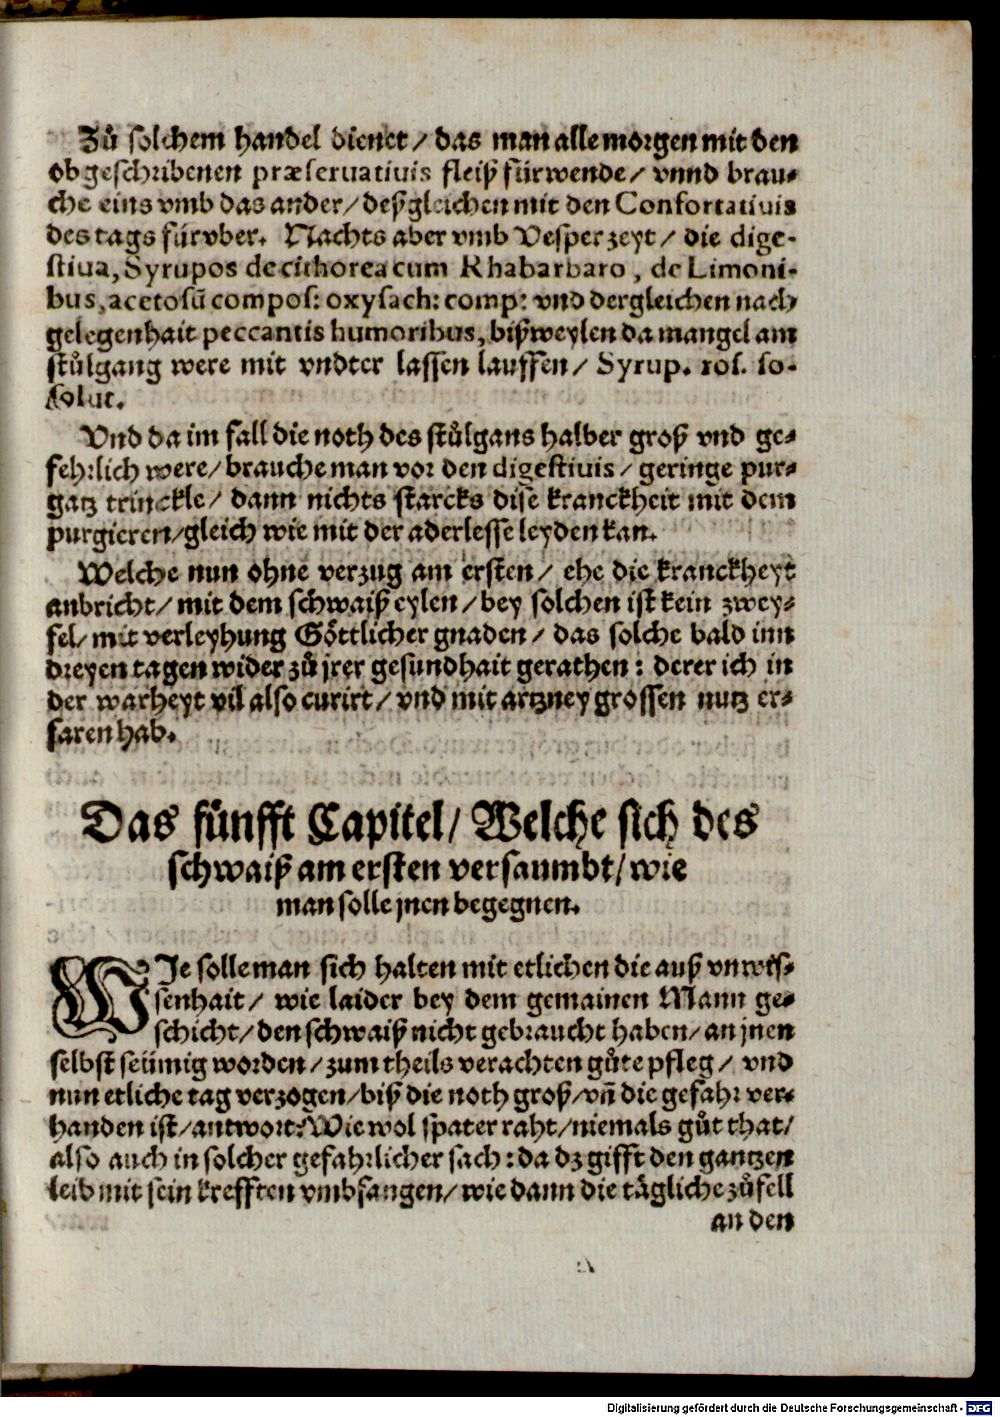 Zů solchem handel dienet / das man alle morgen mit den
obgeschribenen præseruatiuis fleiß fürwende / vnnd brau⸗
che eins vmb das ander / deßgleichen mit den Confortatiuis
des tags fürvber. Nachts aber vmb Vesperzeyt / die dige-
stiua, Syrupos de cichorea cum Rhabarbaro, de Limoni-
bus, acetosū compos: oxysach: comp: vnd dergleichen nach
gelegenhait peccantis humoribus, bißweylen da mangel am
stůlgang were mit vndter lassen lauffen / Syrup. ros. so-
solut.
Vnd da im fall die noth des stůlgans halber groß vnd ge⸗
fehrlich were / brauche man vor den digestiuis / geringe pur⸗
gatz trinckle / dann nichts starcks dise kranckheit mit dem
purgieren / gleich wie mit der aderlesse leyden kan.
Welche nun ohne verzug am ersten / ehe die kranckheyt
anbricht / mit dem schwaiß eylen / bey solchen ist kein zwey⸗
fel / mit verleyhung Göttlicher gnaden / das solche bald inn
dreyen tagen wider zů jrer gesundhait gerathen: derer ich in
der warheyt vil also curirt / vnd mit artzney grossen nutz er⸗
faren hab.
Das fünfft Capitel / Welche sich des
schwaiß am ersten versaumbt / wie
man solle jnen begegnen.
WIe solle man sich halten mit etlichen die auß vnwis⸗
senhait / wie laider bey dem gemainen Mann ge⸗
schicht / den schwaiß nicht gebraucht haben / an jnen
selbst seümig worden / zum theils verachten gůte pfleg / vnd
nun etliche tag verzogen / biß die noth groß / vñ die gefahr ver⸗
handen ist / antwort: Wie wol spater raht / niemals gůt that /
also auch in solcher gefahrlicher sach: da dz gifft den gantzen
leib mit sein krefften vmbfangen / wie dann die tägliche zůfell
an den
Digitalisierung gefördert durch die Deutsche Forschungsgemeinschaft - DFG